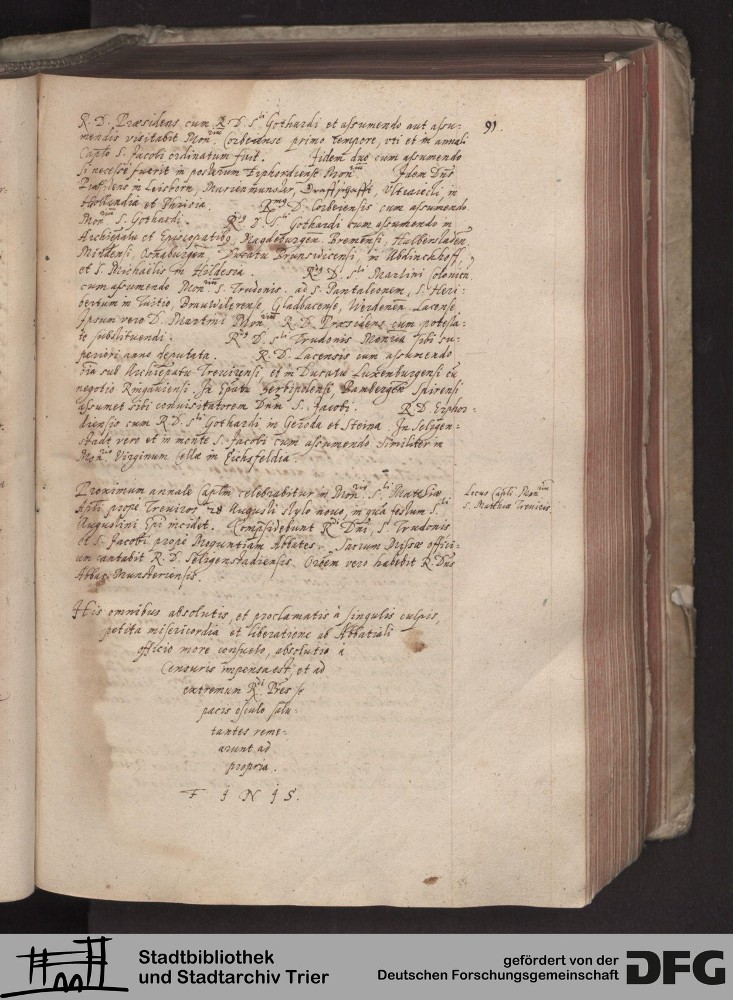 91.
R. D. Præsidens cum R. D. S.ti Gothardi et assumendo aut assu:
mendis visitabit Mon.rium Corbeiense primo tempore, vti et in annali
Capto S. Jacobi ordinatum fuit. Jidem duo cum assumendo
si necesse fuerit in posterum Erphordiense Mon.rium Idem Dñs
Præsidens in Lisborn, Marienmunster, Vltraiecti in
Hollandia et Phrisia. R.mg D. Corbeiensis cum assumendo
Mon.rium S. Gothardi. R.dg D. S.ti Gothardi cum assumendo in
Archiepatu et Episcopatibg Magdeburgen Bremensi, Halbenstaden,
Mindensi, Osnaburgen, Ducatu Brunswicensi, in Abdinchhoff,
et S. Michaelis in Hildesia. R.dg D. S.ti Martini Colonien
cum assumendo Mon.rium S. Trudonis. ad S. Pantaleonem, S. Heri:
bertum in Tuitio, Brauwilerense, Gladbacense, Werdenen, Lacense,
Ipsum vero D. Martini Mon.rium R. D. Præsidens cum potesta:
te substituendi. R.dg D. S.ti Trudonis Monria sibi su:
periori anno deputata. R. D. Lacensis cum assumendo
ria sub Archiepatu Treuirensi, et in Ducatu Luxenburgensi cū
negotio Ringauiensi. In Epatu Herbipolensi, Bambergen Spirensi
assumet sibi conuisitatorem Dnm S. Jacobi. R. D. Erphor:
diensis cum R. D. S.ti Gothardi in Geroda et Steina In Seligen:
stadt vero et in monte S. Jacobi cum assumendo similiter in
Mon.rio Virginum Cellæ in Eichsfeldia.
Proximum annale Captm celebrabitur in Mon.rio S.ti Matthiæ
Apli prope Treuiros 28 Augusti stylo nouo, in qua festum S.ti
Augustini Epi incidet. Compsidebunt R.di Dni, S.ti Trudonis
et S. Jacobi prope Moguntiam Abbates. Sacrum Missæ offici:
um cantabit R. D. Seligenstadiensis. Oroem vero habebit R. Dñs
Abbas Munsteriensis.
Locus Captli Mon.rium
S. Matthiæ Treuiris.
His omnibus absolutis, et proclamatis à singulis culpis,
petita misericordia et liberatione ab Abbatiali
officio more consueto, absolutio à
Censuris impensa est, et ad
extremum R.di Pres se
pacis osculo salu:
tantes reme:
arunt ad
propria.
F I N I S.
Stadtbibliothek
und Stadtarchiv Trier
gefördert von der
Deutschen Forschungsgemeinschaft
DFG